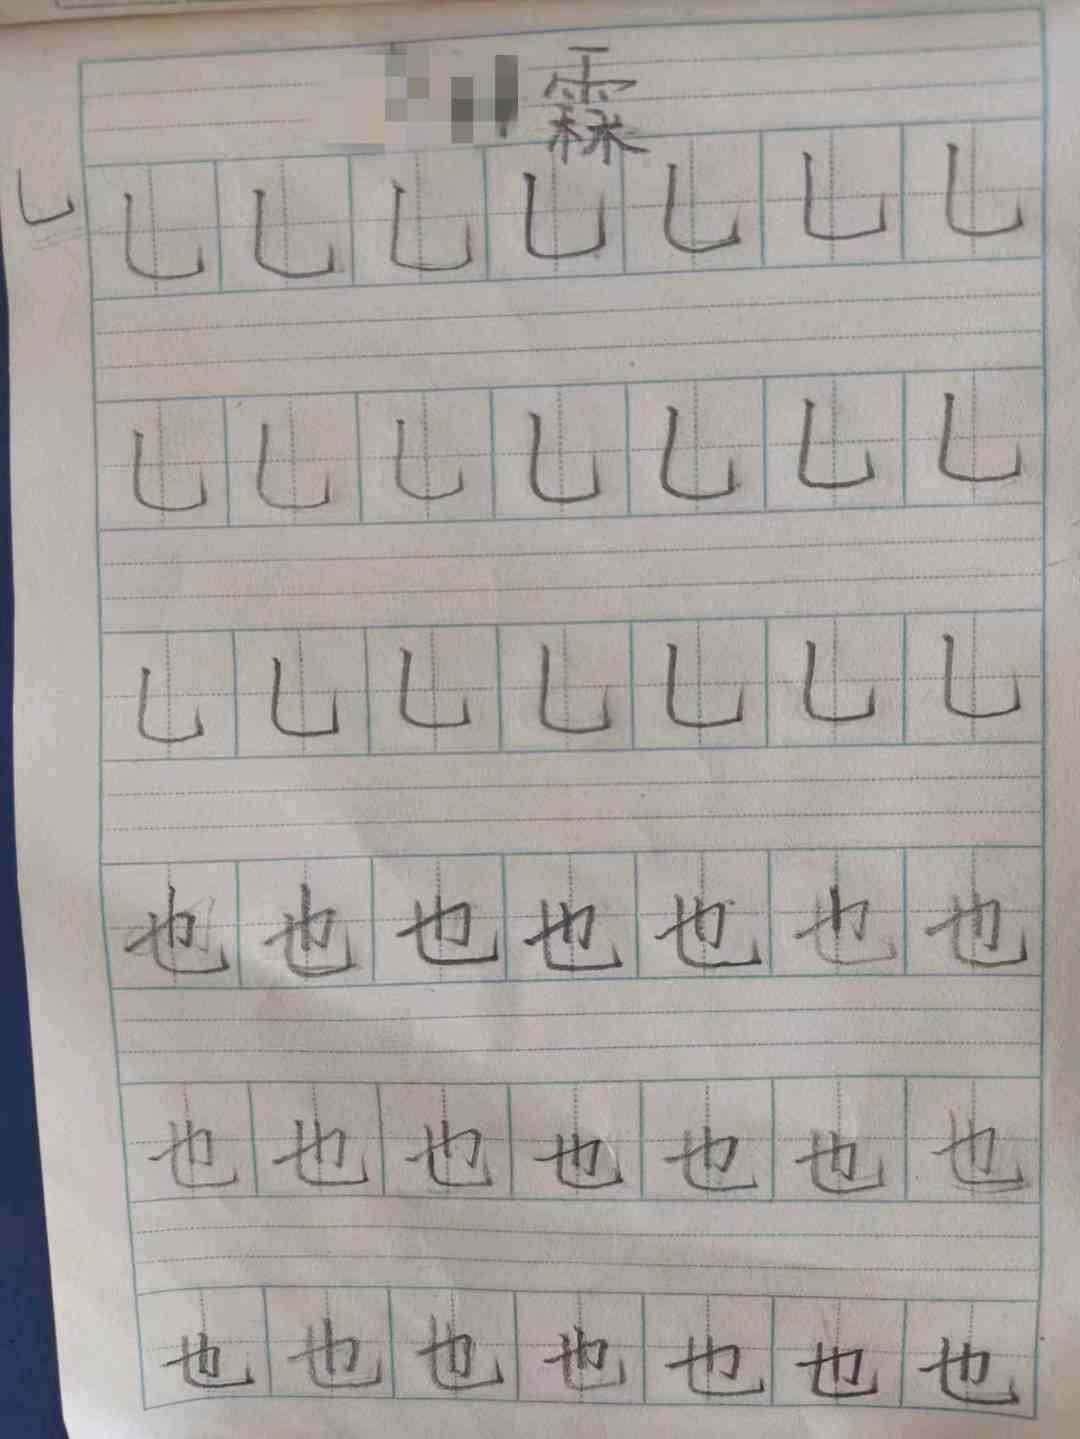 霖
乚 乚 乚 乚 乚 乚 乚 乚
乚 乚 乚 乚 乚 乚 乚
乚 乚 乚 乚 乚 乚 乚
也 也 也 也 也 也 也
也 也 也 也 也 也 也
也 也 也 也 也 也 也